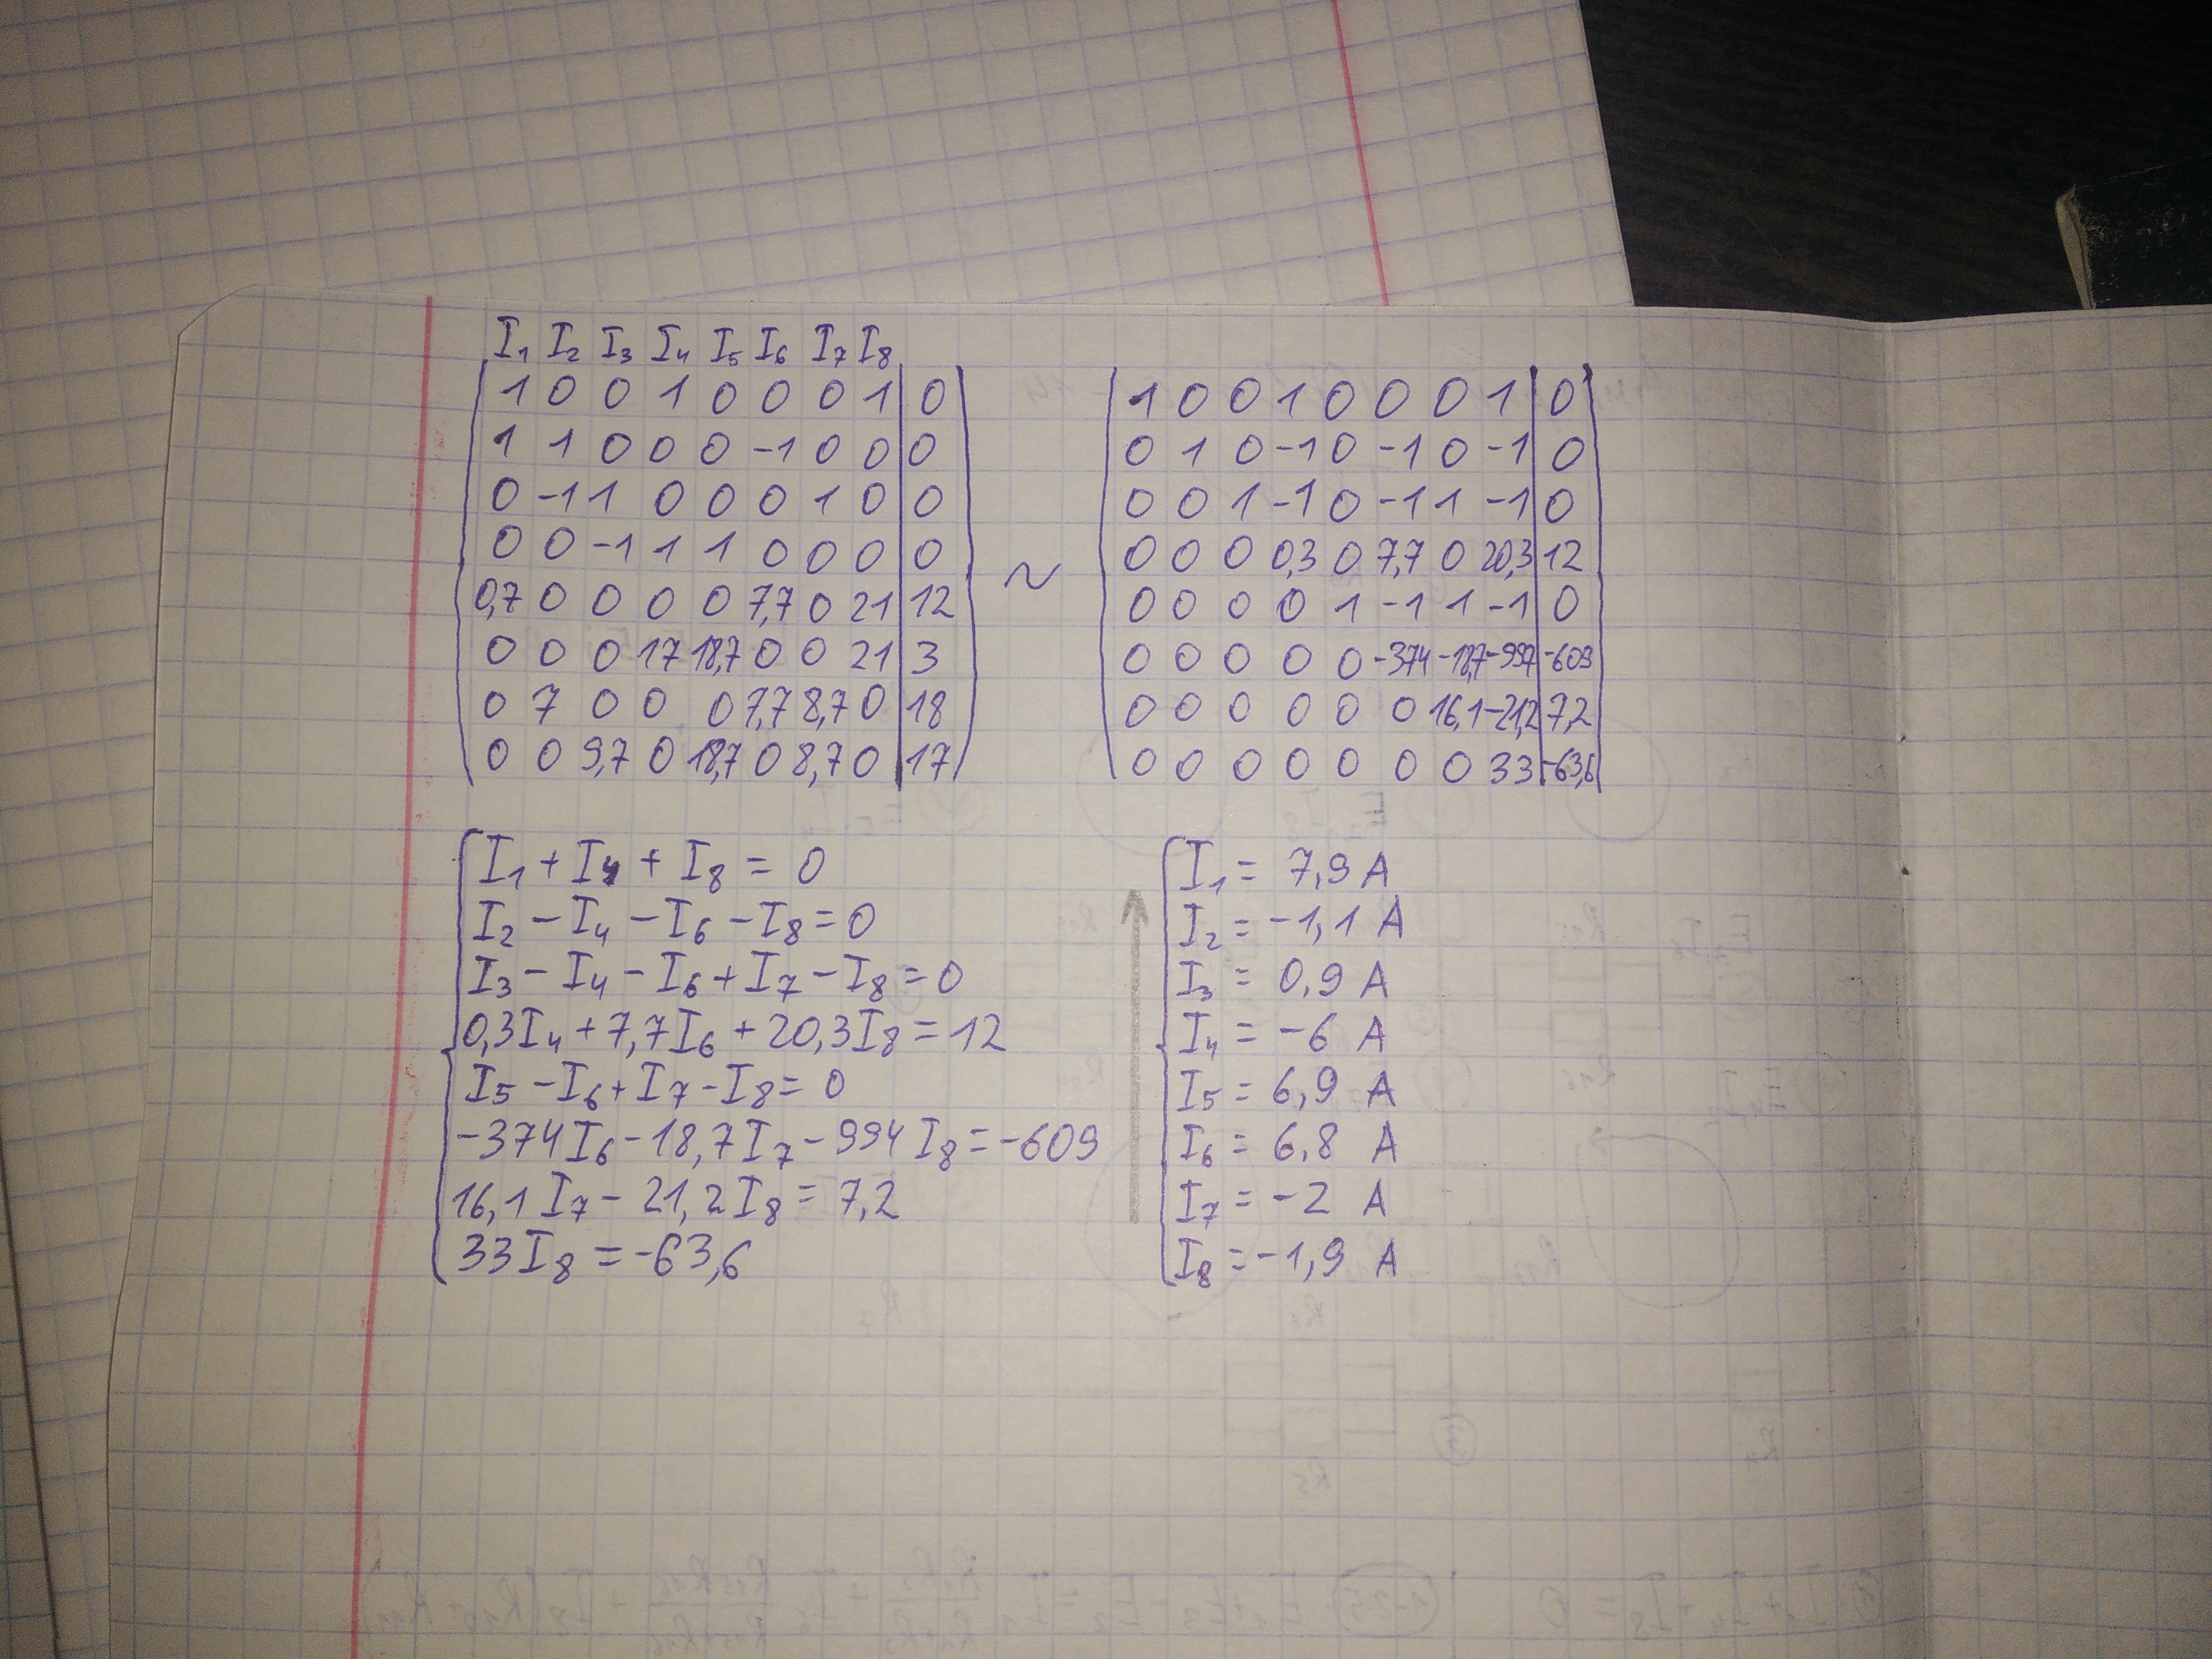 I₁ I₂ I₃ I₄ I₅ I₆ I₇ I₈
1 0 0 1 0 0 0 1 | 0
1 1 0 0 0 -1 0 0 | 0
0 -1 1 0 0 0 1 0 | 0
0 0 -1 1 1 0 0 0 | 0
0,7 0 0 0 0 7,7 0 21 | 12
0 0 0 17 18,7 0 0 21 | 3
0 7 0 0 0 7,7 8,7 0 | 18
0 0 9,7 0 18,7 0 8,7 0 | 17
~
1 0 0 1 0 0 0 1 | 0
0 1 0 -1 0 -1 0 -1 | 0
0 0 1 -1 0 -1 1 -1 | 0
0 0 0 0,3 0 7,7 0 20,3 | 12
0 0 0 0 1 -1 1 -1 | 0
0 0 0 0 0 -374 -18,7 -997 | -609
0 0 0 0 0 0 16,1 -21,2 | 7,2
0 0 0 0 0 0 0 33 | -63,6
I₁ + I₄ + I₈ = 0
I₂ - I₄ - I₆ - I₈ = 0
I₃ - I₄ - I₆ + I₇ - I₈ = 0
0,3I₄ + 7,7I₆ + 20,3I₈ = 12
I₅ - I₆ + I₇ - I₈ = 0
-374I₆ - 18,7I₇ - 994I₈ = -609
16,1I₇ - 21,2I₈ = 7,2
33I₈ = -63,6
I₁ = 7,9 A
I₂ = -1,1 A
I₃ = 0,9 A
I₄ = -6 A
I₅ = 6,9 A
I₆ = 6,8 A
I₇ = -2 A
I₈ = -1,9 A